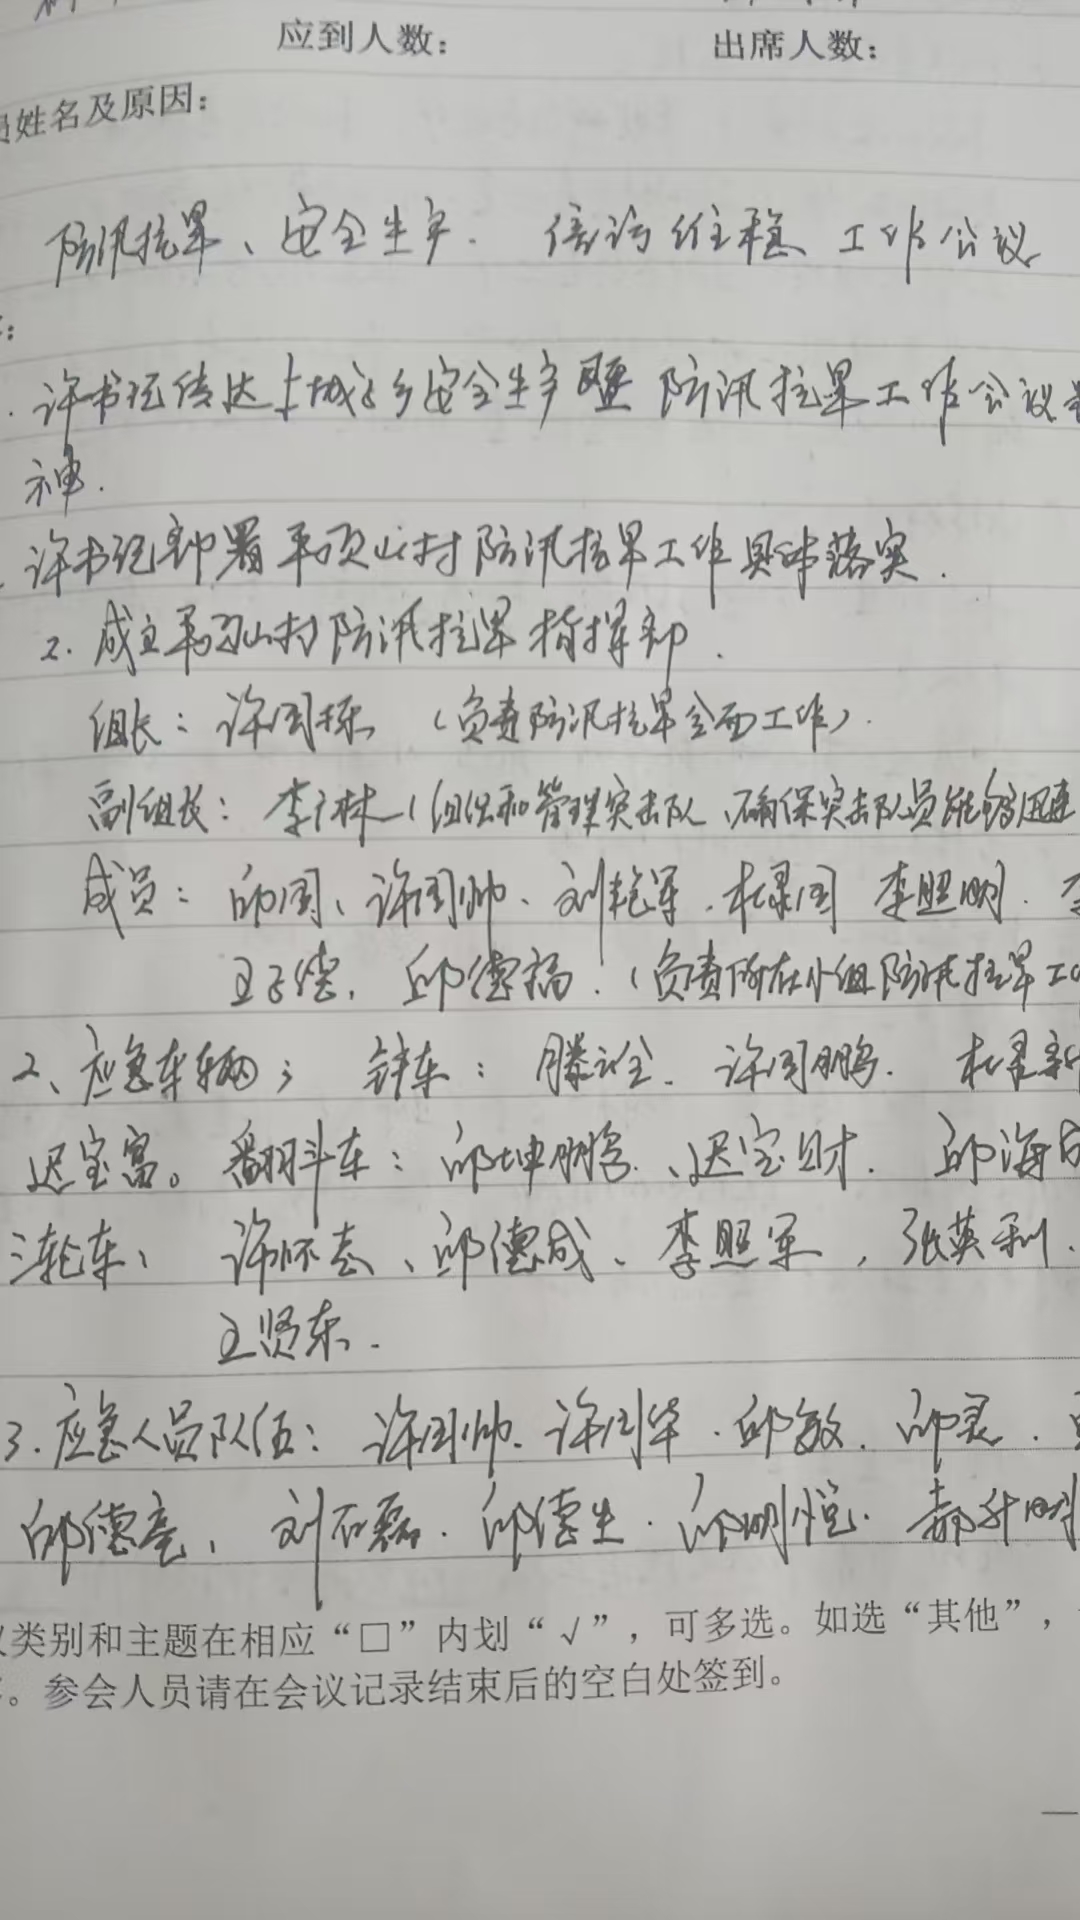 应到人数： 出席人数：
员姓名及原因：
防汛抗旱、安全生产. 信访维稳 工作会议
许书记传达 乡安全生产暨 防汛抗旱工作会议
神.
许书记部署平顶山村防汛抗旱工作具体落实.
2. 成立平顶山村防汛抗旱指挥部.
组长： 许国栋 （负责防汛抗旱全面工作）.
副组长： 李林（组织和管理突击队、确保突击队员能够迅速
成员： 邱国、许国帅、刘艳军、杜录国 李照明.
王子德, 邱德福. （负责所在小组防汛抗旱工
2、应急车辆； 铲车： 滕诠. 许国鹏.
迟宝富。翻斗车： 邱坤鹏、迟宝财. 邱海
三轮车、 许怀志、邱德成、李照军, 张英利.
王贤东.
3. 应急人员队伍： 许国帅. 许国华. 邱敏. 邱灵.
邱德亮, 刘石磊. 邱德生. 邱明悦. 郝升明
类别和主题在相应“□”内划“√”，可多选。如选“其他”，
。参会人员请在会议记录结束后的空白处签到。